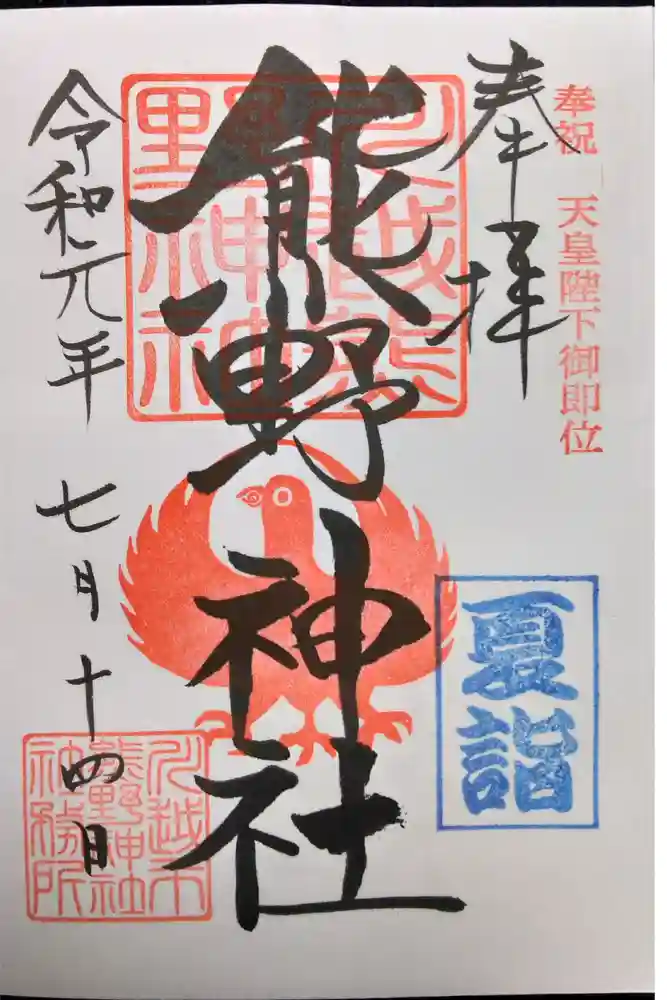 奉祝 天皇陛下御即位
奉拝
夏詣
熊野神社
川越熊
野神社
令和元年 七月十四日
川越市
熊野神社
社務所